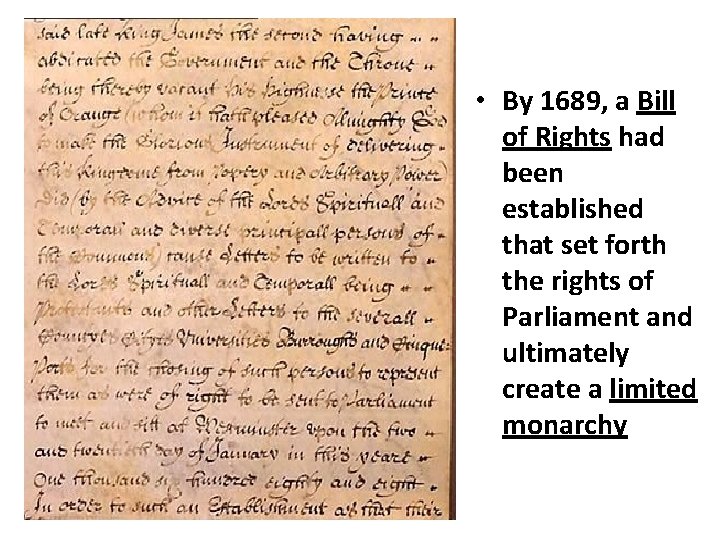 said late King James the second having
abdicated the Government and the Throne
being thereby vacant his Highnesse the Prince
of Orange (whom it hath pleased Almighty God
to make the Glorious Instrument of delivering
this Kingdome from Popery and Arbitrary Power)
Did (by the Advice of the Lords Spirituall and
Temporall and diverse principall persons of
the Commons) cause Letters to be written to
the Lords Spirituall and Temporall being
Protestants and other Letters to the severall
Countyes Cityes Universities Burroughs and Cinque
Ports for the chosing of such persons to represent
them as were of right to be sent to Parliament
to meet and sitt at Westminster upon the two
and twentieth day of January in this yeare
One thousand six hundred eighty and eight
In order to such an Establishment as that their
• By 1689, a Bill
of Rights had
been
established
that set forth
the rights of
Parliament and
ultimately
create a limited
monarchy